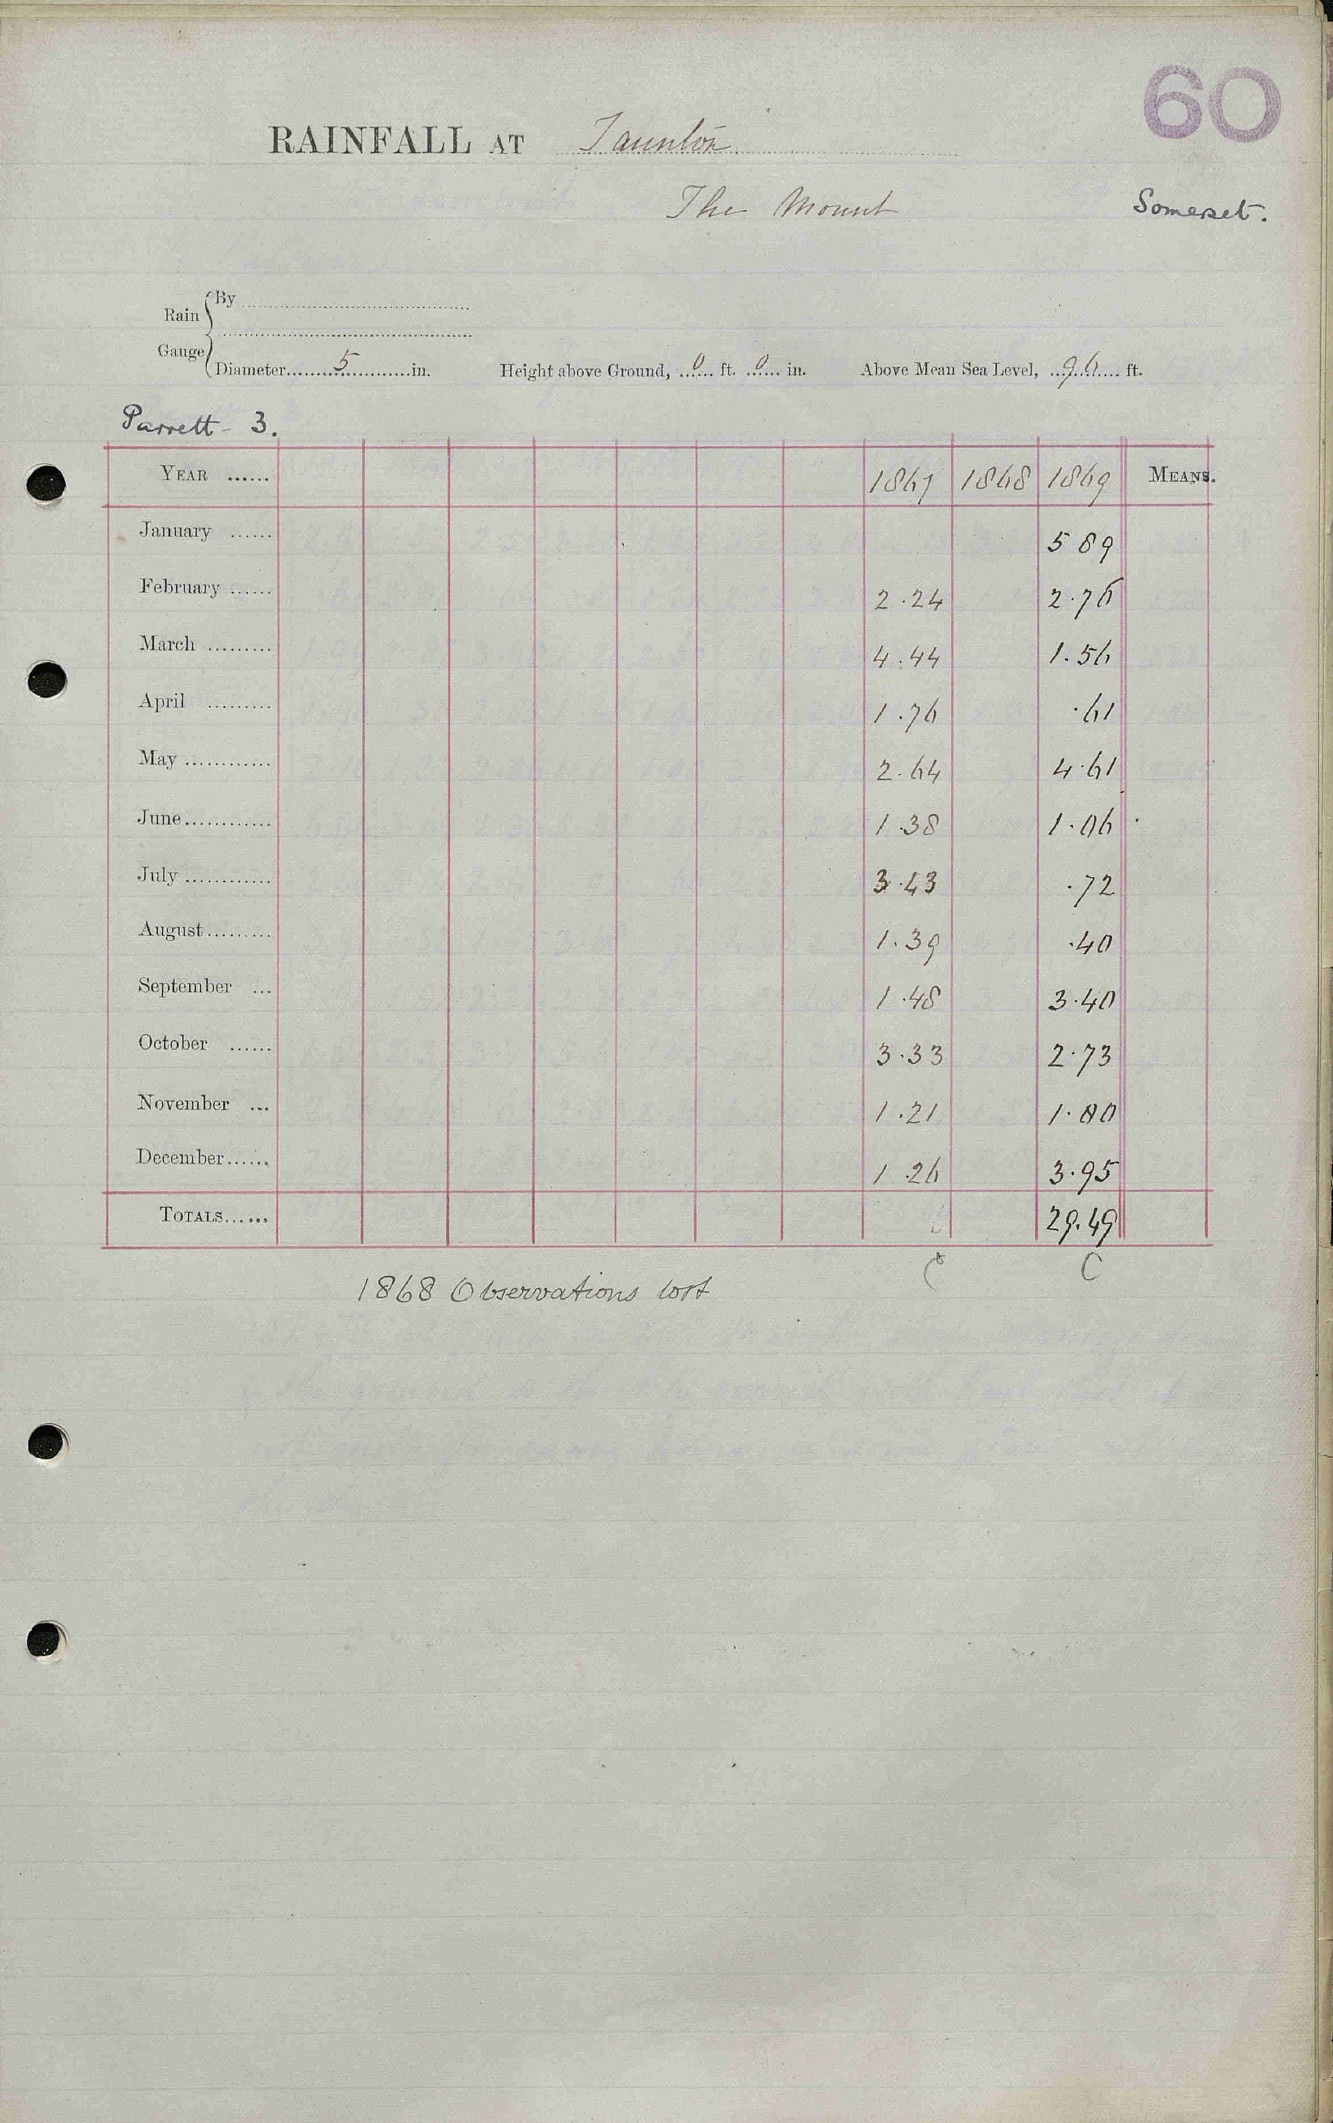 60
RAINFALL AT Taunton
The Mount
Somerset.
Rain Gauge
By
Diameter 5 in. Height above Ground, 0 ft. 0 in. Above Mean Sea Level, 96 ft.
Parrett - 3.
YEAR ...... 1867 1868 1869 MEANS.
January ...... 5 89
February ...... 2.24 2.76
March ......... 4.44 1.56
April ......... 1.76 .61
May ............ 2.64 4.61
June ............ 1.38 1.06
July ............ 3.43 .72
August ......... 1.39 .40
September ... 1.48 3.40
October ...... 3.33 2.73
November ... 1.21 1.80
December ...... 1.26 3.95
TOTALS ...... 29.49
C C
1868 Observations lost